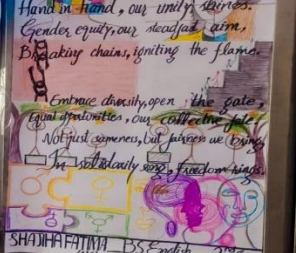 Hand in hand, our unity shines.
Gender equity, our steadfast aim,
Breaking chains, igniting the flame.
Embrace diversity, open the gate,
Equal opportunities, our collective fate;
Not just sameness, but fairness we bring,
In solidarity song, freedom rings.
SHAJIHA FATIMA BS English